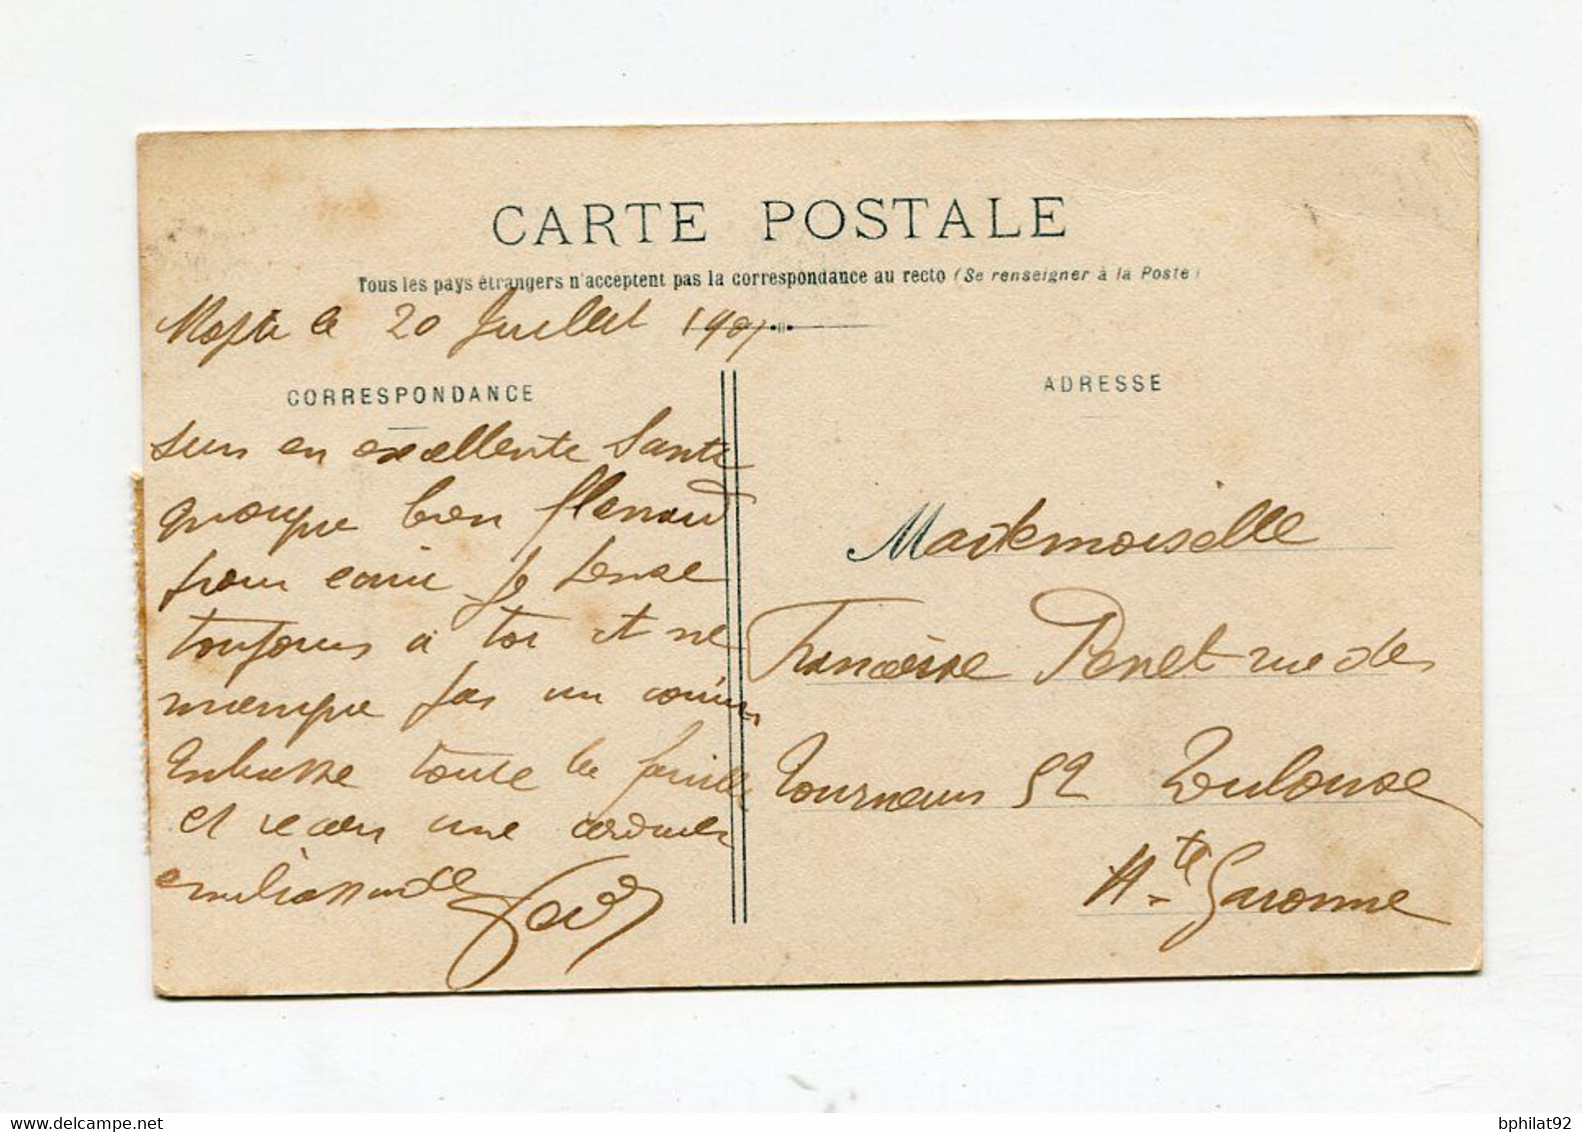 CARTE POSTALE
Tous les pays étrangers n'acceptent pas la correspondance au recto (Se renseigner à la Poste)
le 20 Juillet 1907
CORRESPONDANCE
suis en excellente Santé
quoique bien flemard
pour écrire Je pense
toujours à toi et ne
manque pas un courrier
Embrasse toute la famille
et recois une cordiale
embrassade
ADRESSE
Mademoiselle
Penet rue des
Tourneurs 52 Toulouse
Hte Garonne
www.delcampe.net
bphilat92